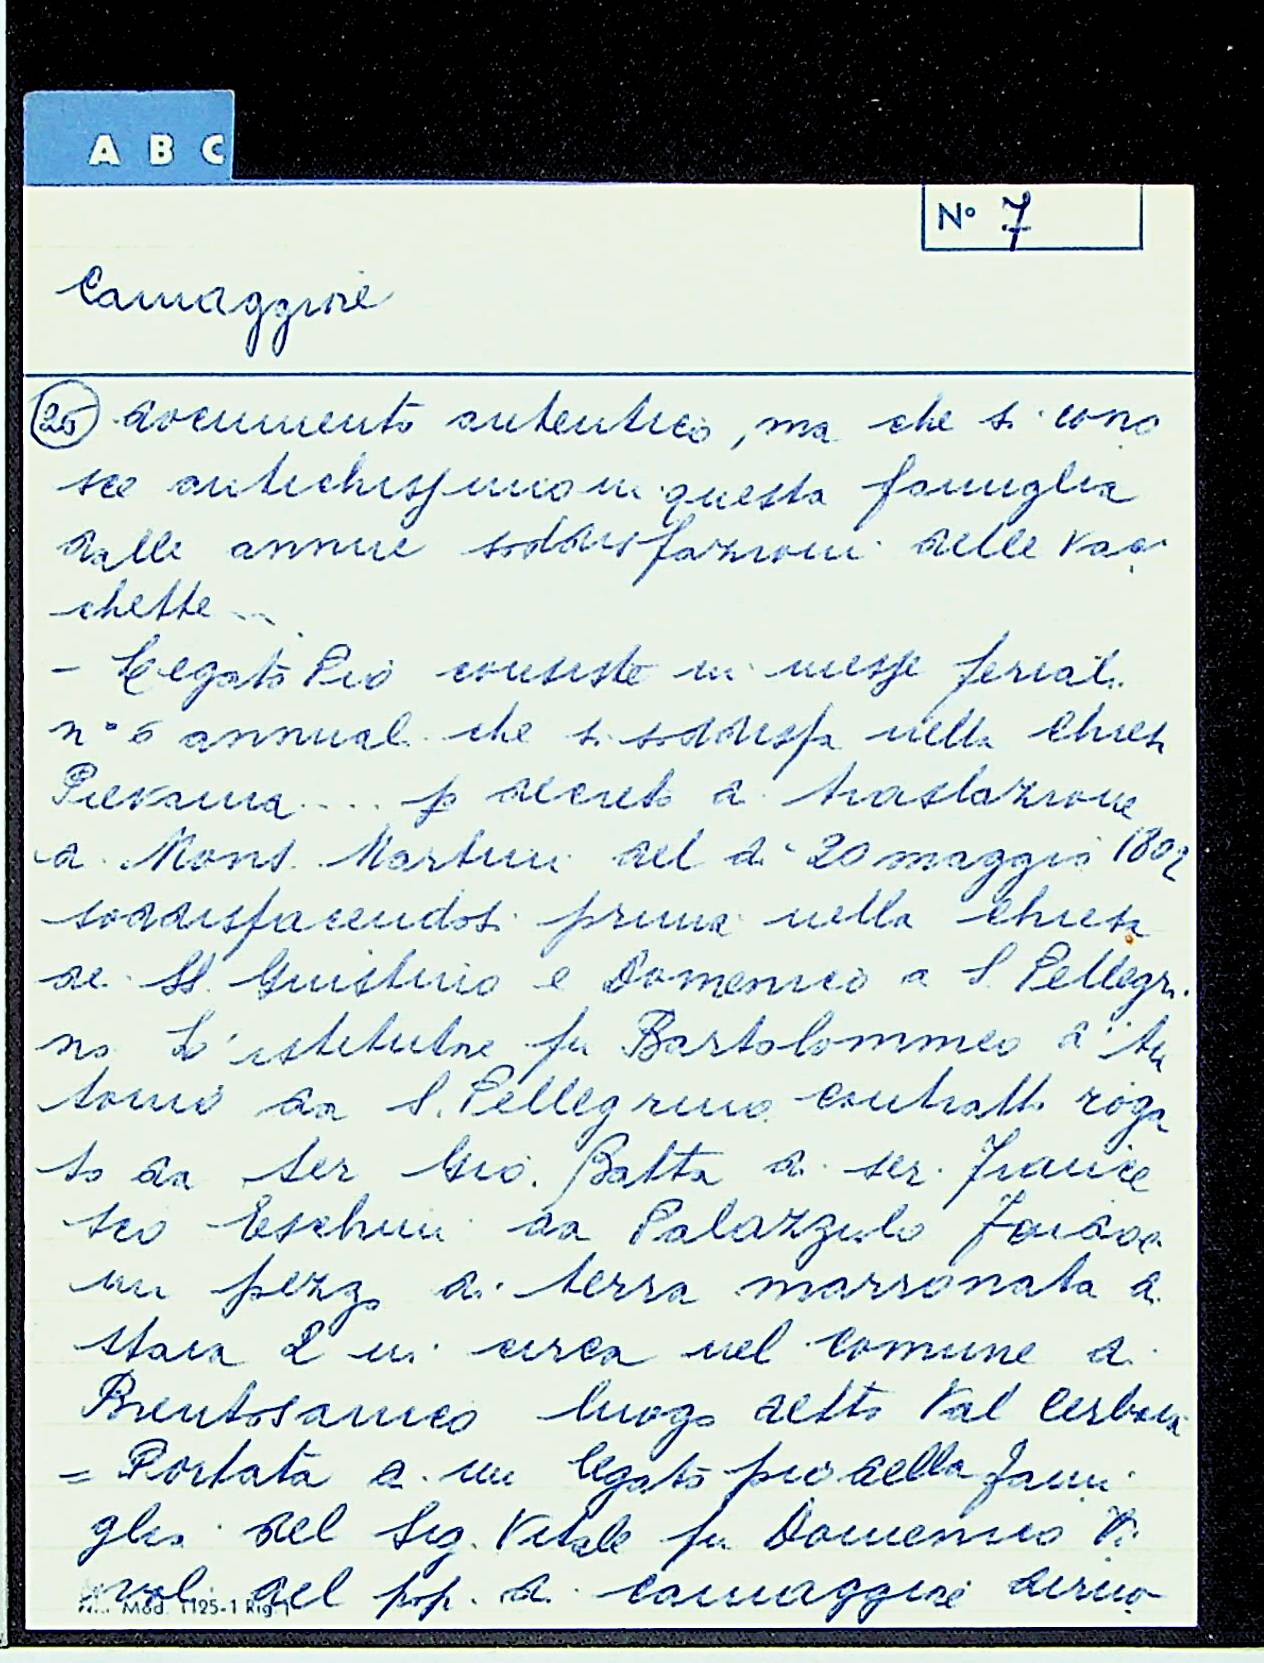 A B C
N° 7
Camaggiore
25 documento autentico, ma che si cono
sce antichissimo in questa famiglia
dalle annue soddisfazioni delle vac
chette...
- Legato Pio consiste in messe feriali
n° 6 annuali che si soddisfa nella Chiesa
Pievana .... p decreto di traslazione
di Mons. Martini del di 20 maggio 1802
soddisfacendosi prima nella chiesa
de SS. Giustino e Domenico a S. Pellegri
no L'istitutore fu Bartolommeo d'An
tonio da S. Pellegrino contratto roga
to da ser Gio. Batta di ser France
sco Eschini da Palazzuolo
un pezzo di terra marronata di
staia 2 in circa nel comune di
Brentosanico luogo detto Val
= Portata di un legato pio della fami
glia del Sig. Vitale fu Domenico Vi
voli del pop. di Camaggiore
Mod. 1125-1 Rig. 1